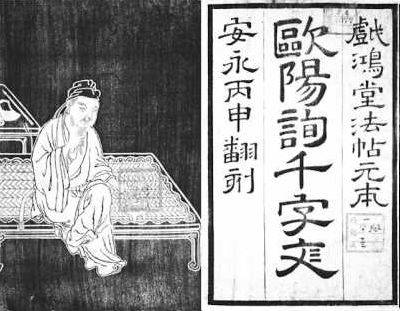 戯鴻堂法帖元本
歐陽詢千字文
安永丙申翻刻